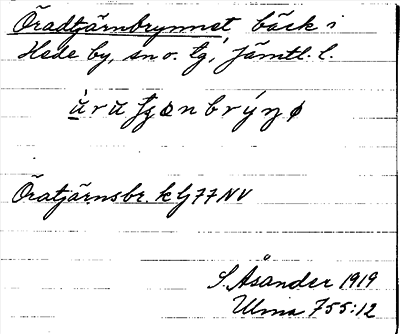 Öradtjärnbrynnet, bäck i
Hede by, sn o. tg, Jämtl. l.
Öratjärnsbr. k G77NV
S. Åsander 1919
Ulma 755:12